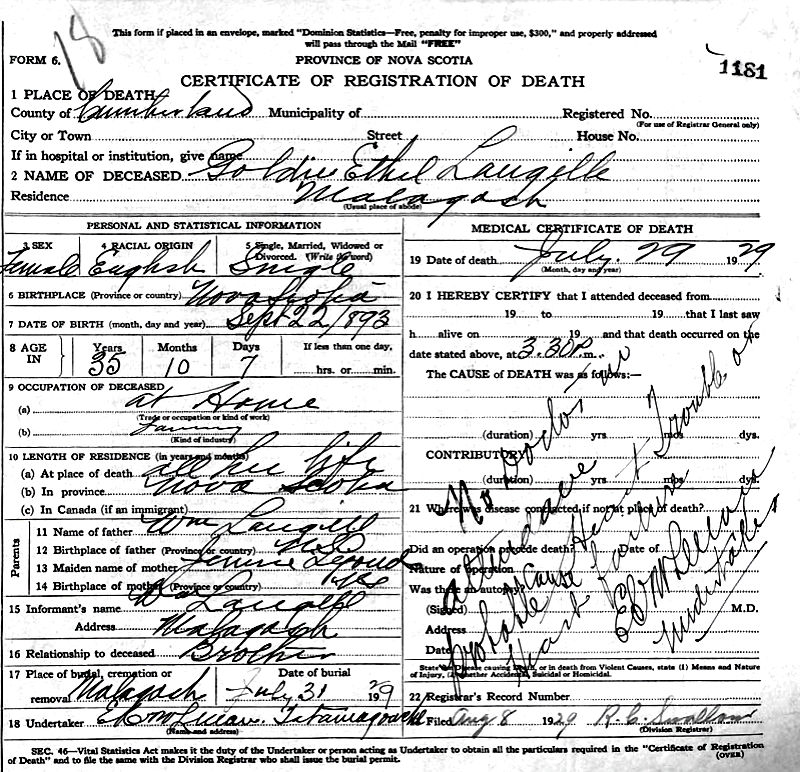 18
This form if placed in an envelope, marked "Dominion Statistics—Free, penalty for improper use, $300," and properly addressed
will pass through the Mail "FREE"
FORM 6.
PROVINCE OF NOVA SCOTIA
1181
CERTIFICATE OF REGISTRATION OF DEATH
1 PLACE OF DEATH
County of Cumberland Municipality of Registered No.
(For use of Registrar General only)
City or Town Street House No.
If in hospital or institution, give name
2 NAME OF DECEASED Goldie Ethel Langille
Residence Malagash
(Usual place of abode)
PERSONAL AND STATISTICAL INFORMATION
3 SEX 4 RACIAL ORIGIN 5 Single, Married, Widowed or
Divorced. (Write the word)
Female English Single
6 BIRTHPLACE (Province or country) Nova Scotia
7 DATE OF BIRTH (month, day and year) Sept 22/1893
8 AGE IN Years Months Days If less than one day,
35 10 7 hrs. or min.
9 OCCUPATION OF DECEASED
(a) at Home
(Trade or occupation or kind of work)
(b) Farming
(Kind of industry)
10 LENGTH OF RESIDENCE (in years and months)
(a) At place of death all her life
(b) In province Nova Scotia
(c) In Canada (if an immigrant)
Parents
11 Name of father Wm Langille
12 Birthplace of father (Province or country) N.S.
13 Maiden name of mother Jennie
14 Birthplace of mother (Province or country) NS
15 Informant's name Langille
Address Malagash
16 Relationship to deceased Brother
17 Place of burial, cremation or Date of burial
removal Malagash July 31 1929
18 Undertaker Tatamagouche
(Name and address)
MEDICAL CERTIFICATE OF DEATH
19 Date of death July. 29 1929
(Month, day and year)
20 I HEREBY CERTIFY that I attended deceased from
19 to 19 that I last saw
h alive on 19 and that death occurred on the
date stated above, at 3.30P m.
The CAUSE of DEATH was as follows:—
(duration) yrs mos dys.
CONTRIBUTORY
(duration) yrs mos dys.
21 Where was disease contracted if not at place of death?
Did an operation precede death? Date of
Nature of operation
Was there an autopsy?
(Signed) M.D.
Address
Date
No Doctor in
attendance
probable Cause Heart Trouble or
Heart failure
Undertaker
State the Disease causing Death, or in death from Violent Causes, state (1) Means and Nature
of Injury, (2) whether Accidental, Suicidal or Homicidal.
22 Registrar's Record Number
Filed Aug 8 1929 R. C.
(Division Registrar)
SEC. 46—Vital Statistics Act makes it the duty of the Undertaker or person acting as Undertaker to obtain all the particulars required in the "Certificate of Registration
of Death" and to file the same with the Division Registrar who shall issue the burial permit.
(OVER)